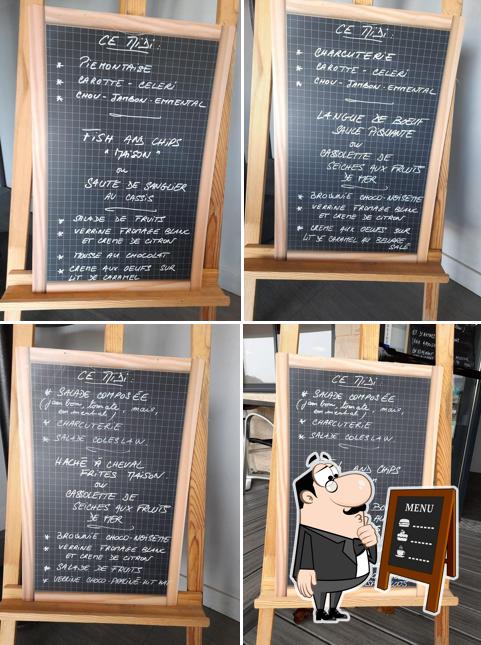 CE MIDI:
* PIEMONTAISE
* CAROTTE - CELERI
* CHOU - JAMBON - EMMENTAL
FISH AND CHIPS
" MAISON "
ou
SAUTE DE SANGLIER
AU CASSIS
* SALADE DE FRUITS
* VERRINE FROMAGE BLANC
ET CREME DE CITRON
* MOUSSE AU CHOCOLAT
* CREME AUX OEUFS SUR
LIT DE CARAMEL
CE MIDI:
* CHARCUTERIE
* CAROTTE - CELERI
* CHOU - JAMBON - EMMENTAL
LANGUE DE BOEUF
SAUCE PIQUANTE
ou
CASSOLETTE DE
SEICHES AUX FRUITS
DE MER
* BROWNIE CHOCO-NOISETTE
* VERRINE FROMAGE BLANC
ET CREME DE CITRON
* CREME AUX OEUFS SUR
LIT DE CARAMEL AU BEURRE
SALE
CE MIDI:
* SALADE COMPOSÉE
(jambon, tomate, maïs,
emmental)
* CHARCUTERIE
* SALADE COLESLAW.
HACHÉ À CHEVAL
FRITES MAISON.
ou
CASSOLETTE DE
SEICHES AUX FRUITS
DE MER
* BROWNIE CHOCO-NOISETTE
* VERRINE FROMAGE BLANC
ET CREME DE CITRON
* SALADE DE FRUITS
* VERRINE CHOCO-
CE MIDI:
* SALADE COMPOSÉE
(jambon, tomate, maïs,
emmental)
* CHARCUTERIE
* SALADE COLESLAW.
AND CHIPS
MENU